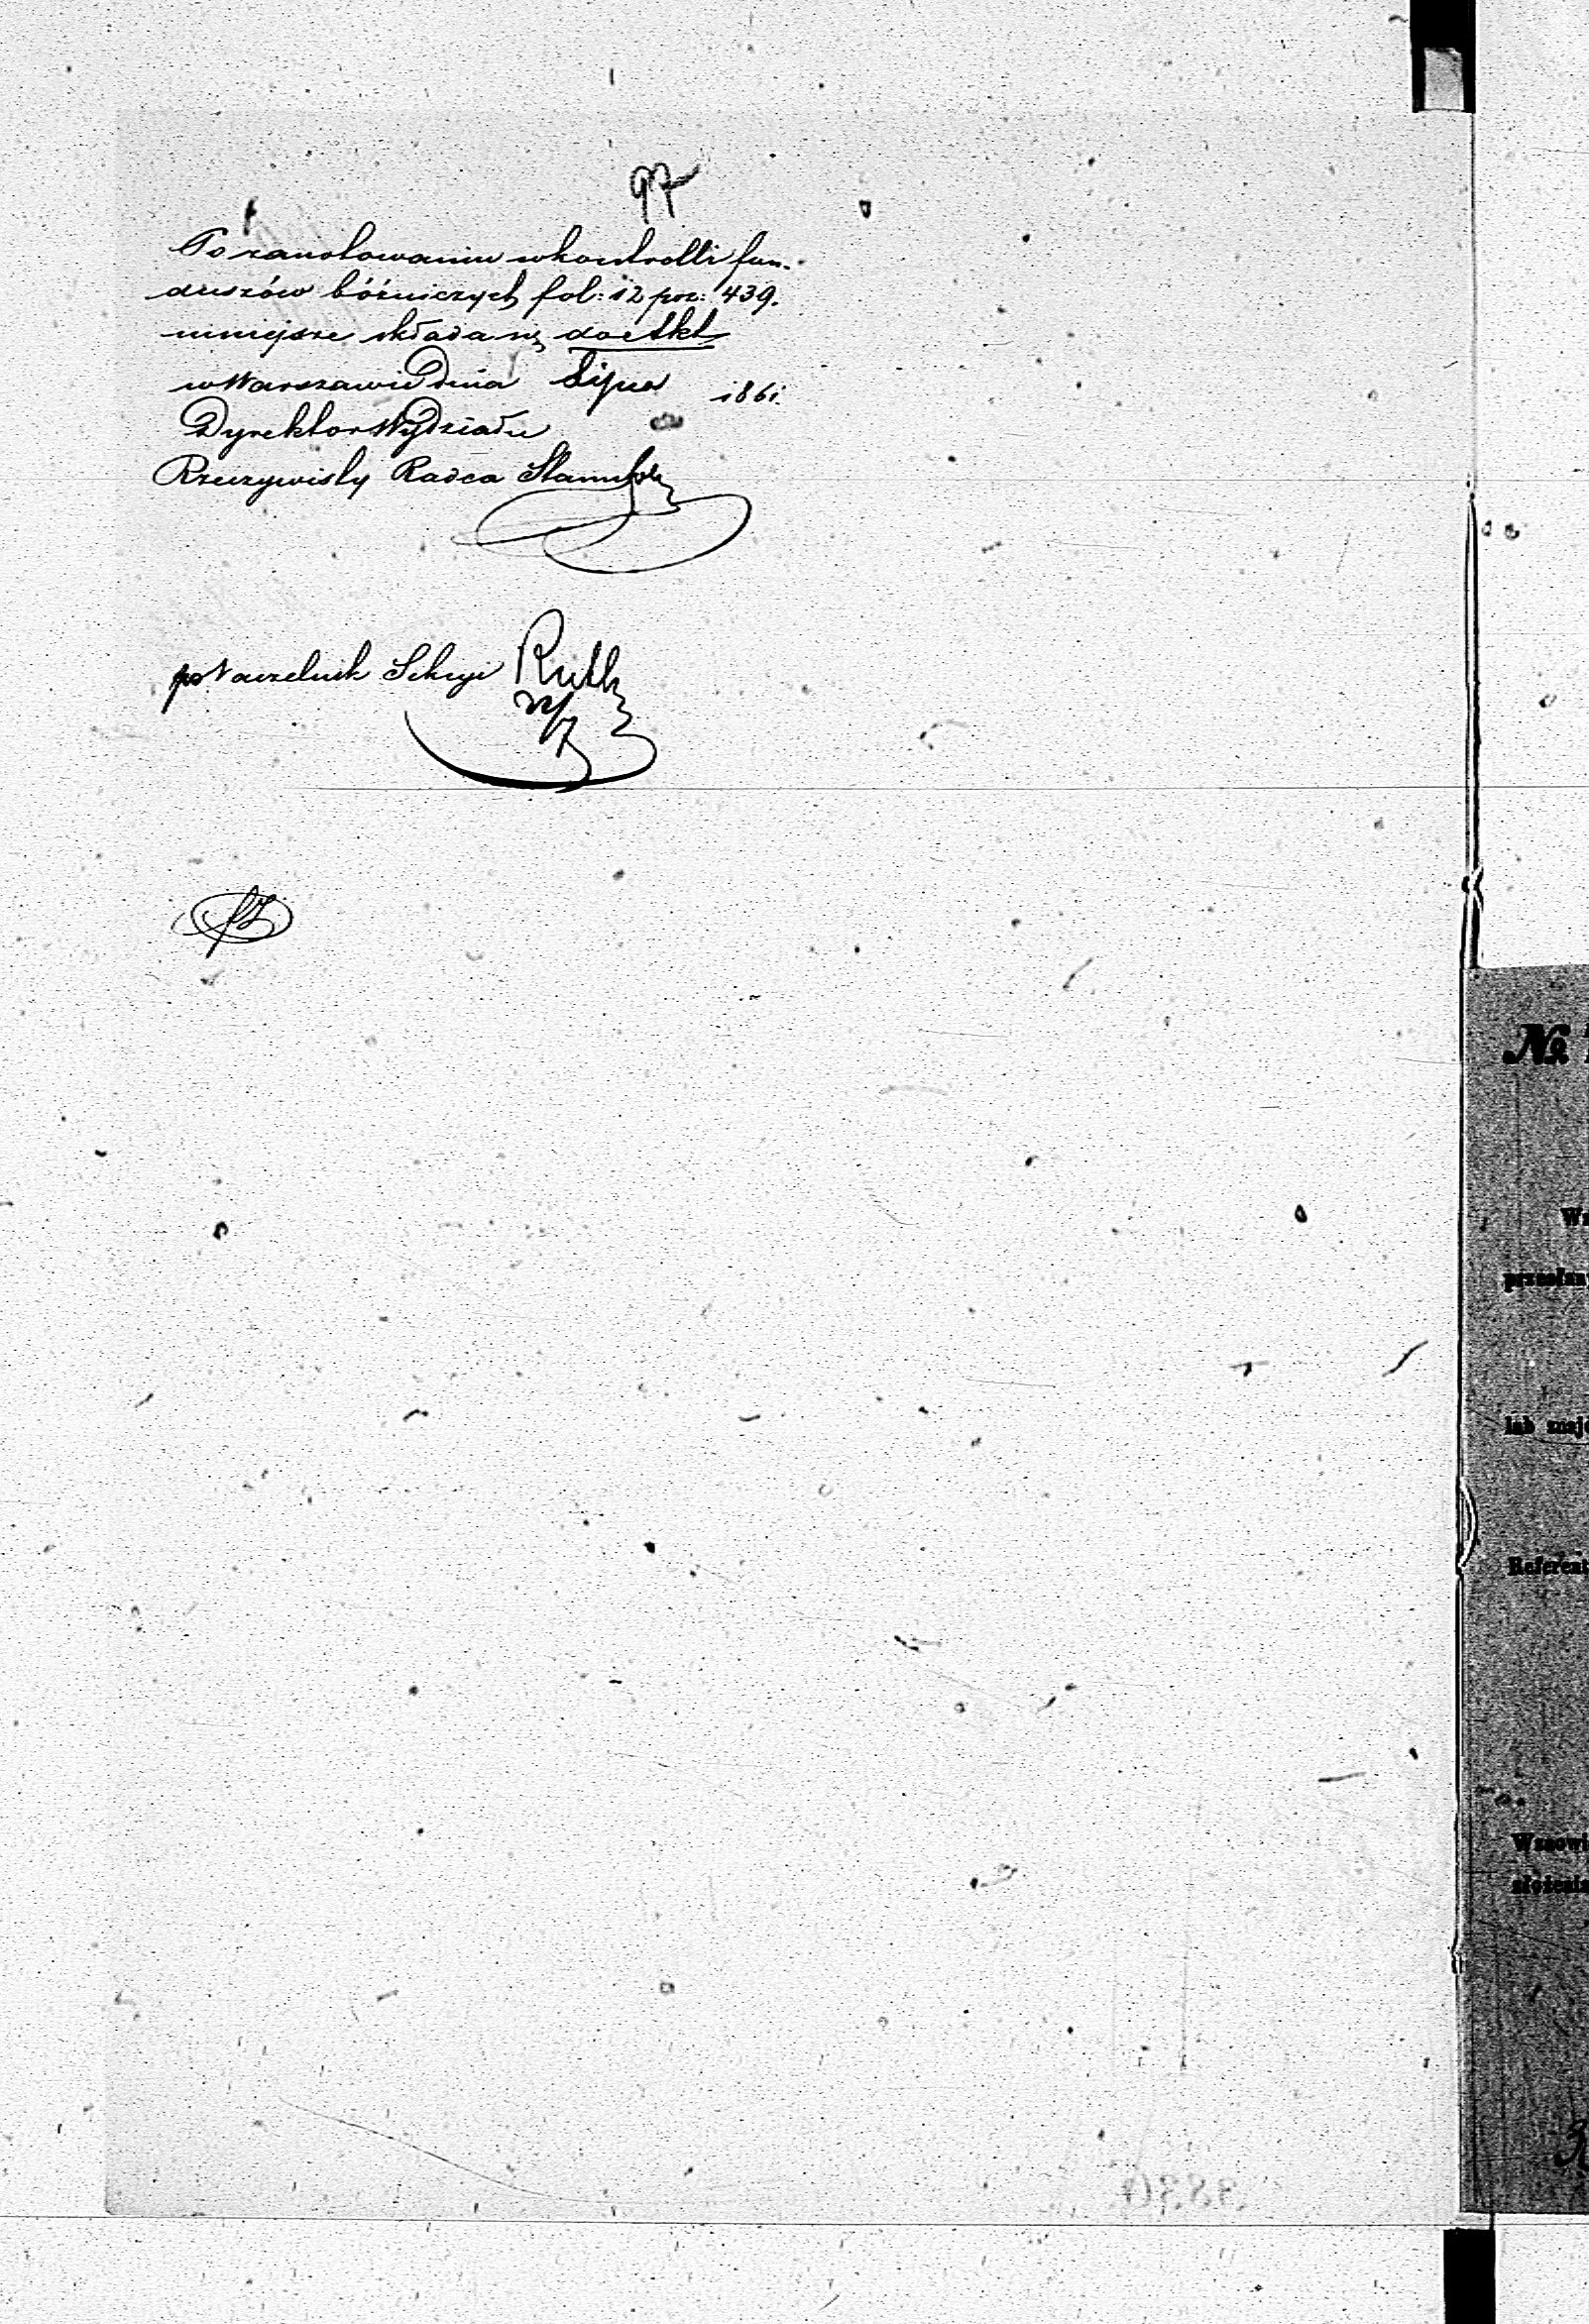 97
Po zanotowaniu w kontrolli fun-
duszów bóźniczych fol: 12 poz: 439.
niniejsze składa się do akt
w Warszawie Dnia Lipca 1861
Dyrektor Wydziału
Rzeczywisty Radca Stanu
po Naczelnik Sekcyi
22/7
№
przesłan
lub znaj
Referent
Wznowi
złożenia